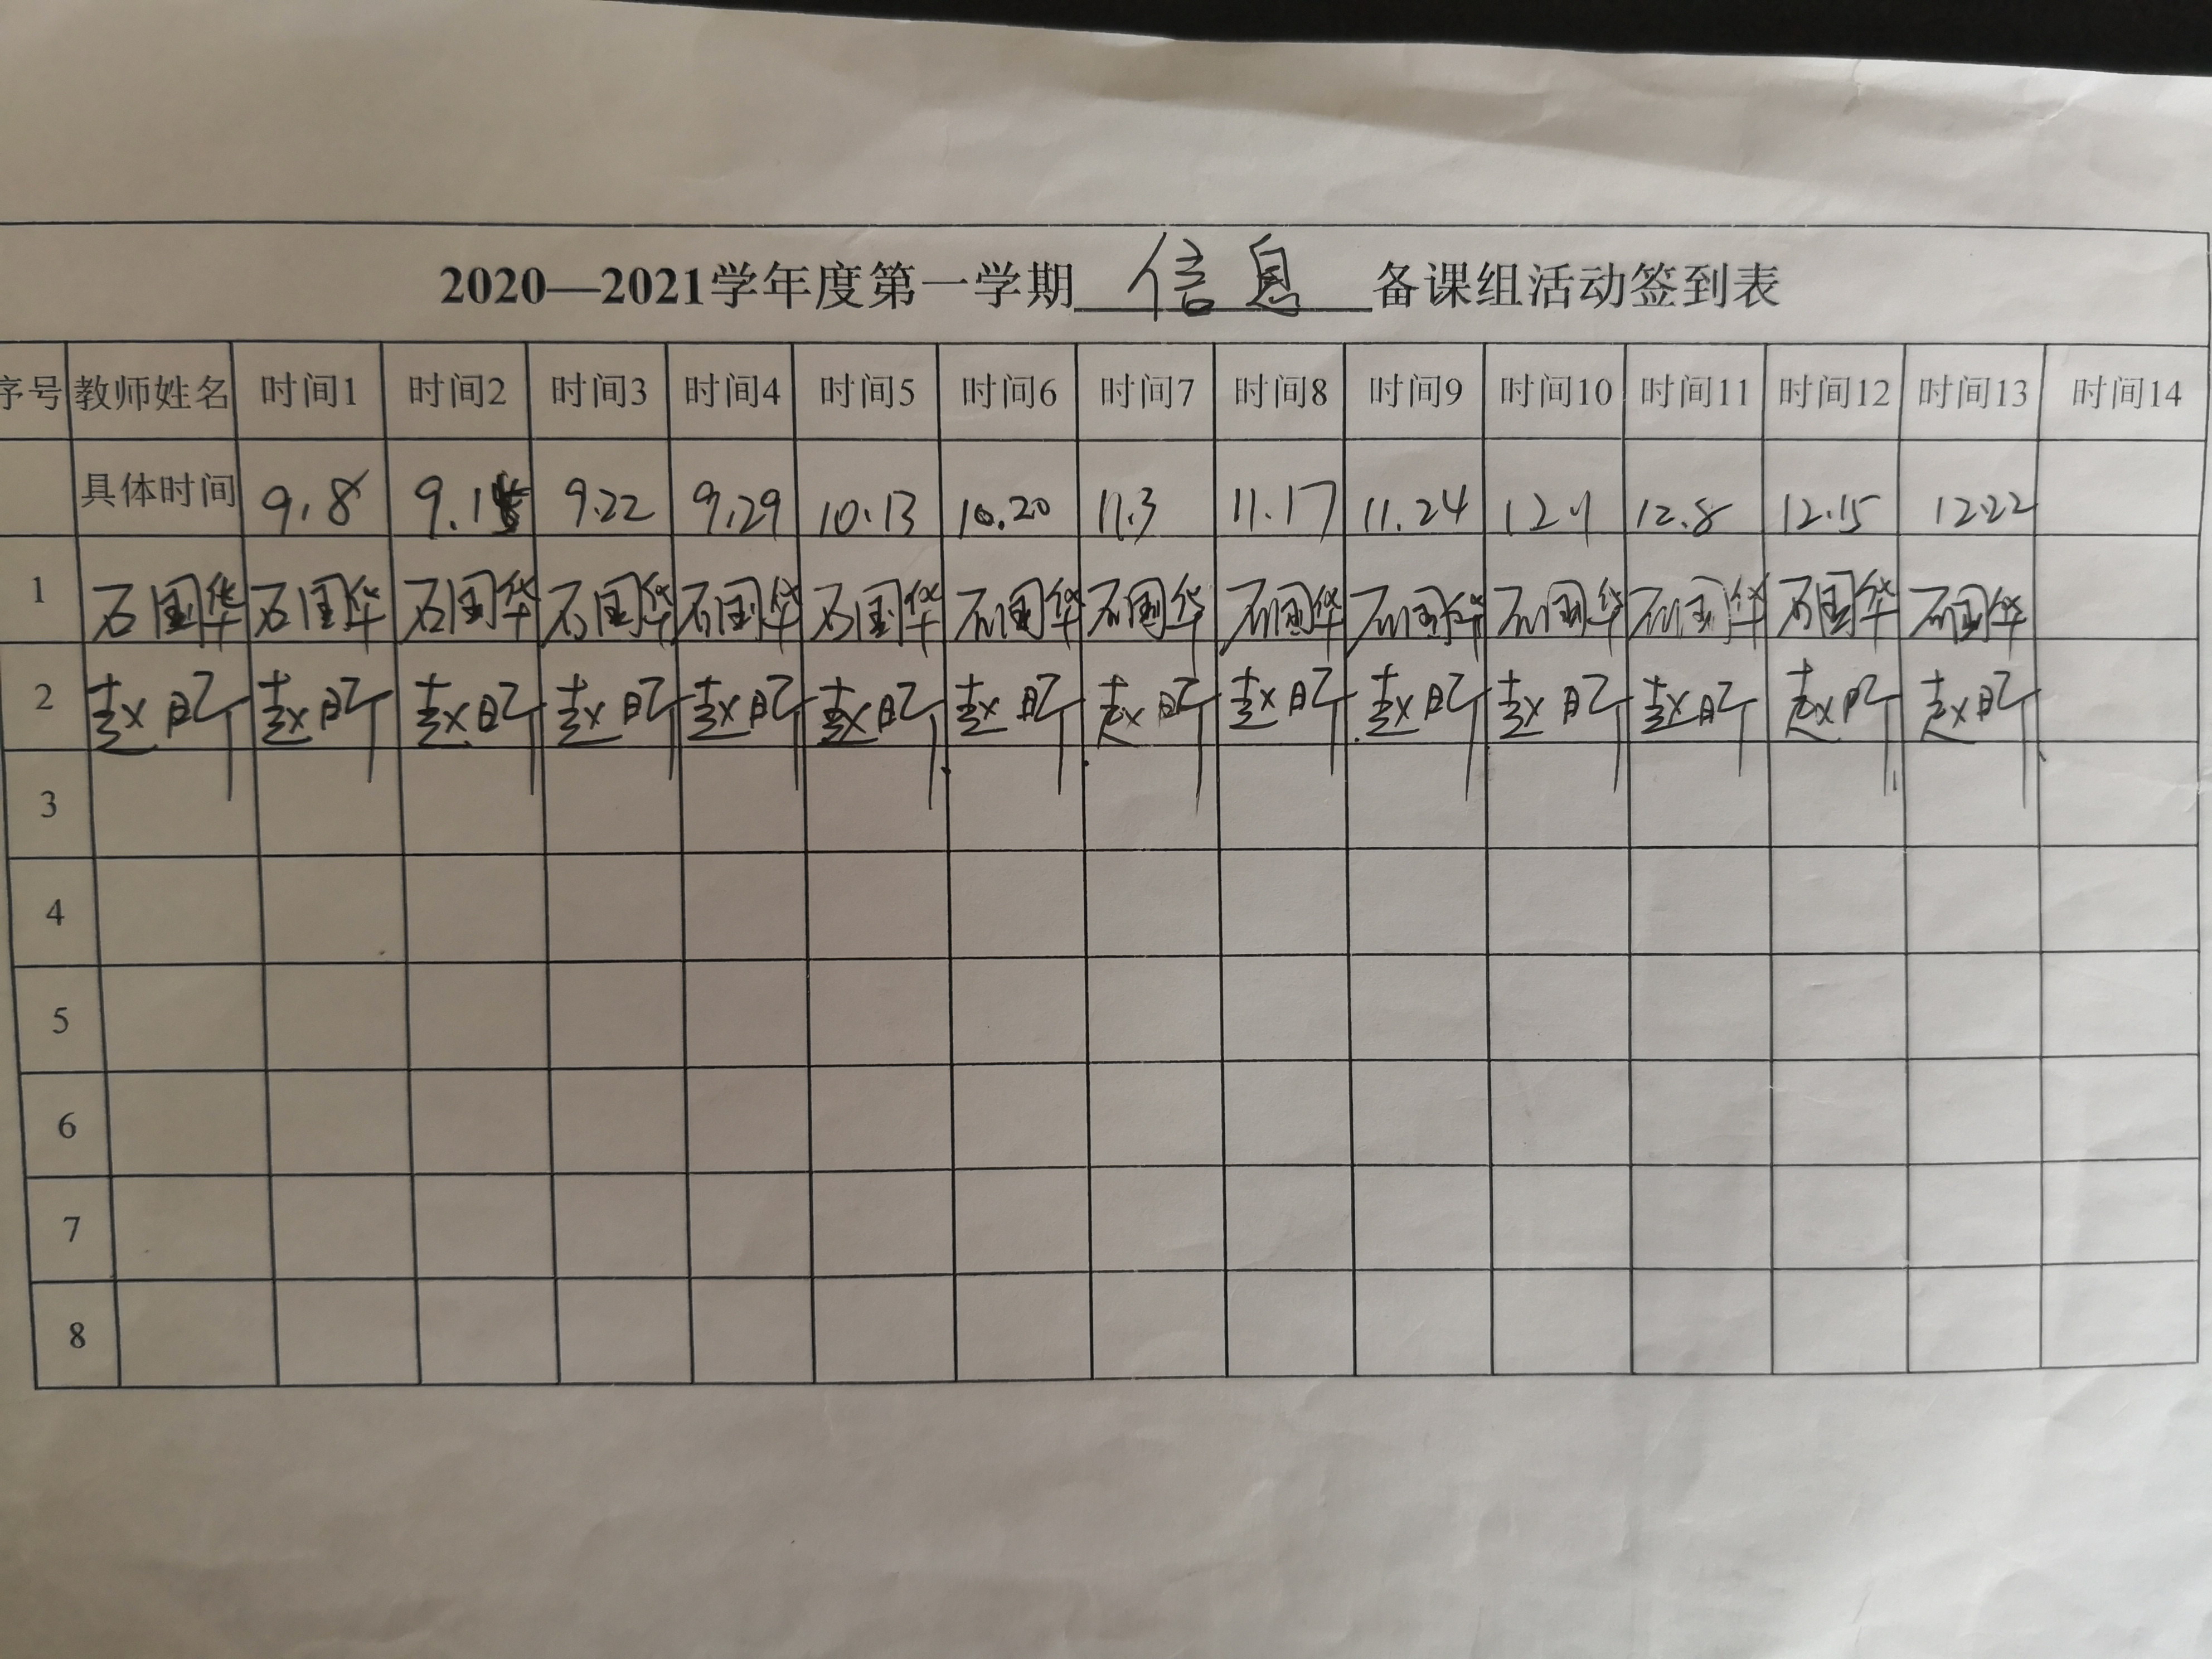 2020—2021学年度第一学期 信息 备课组活动签到表
序号 教师姓名 时间1 时间2 时间3 时间4 时间5 时间6 时间7 时间8 时间9 时间10 时间11 时间12 时间13 时间14
具体时间 9.8 9.15 9.22 9.29 10.13 10.20 11.3 11.17 11.24 12.1 12.8 12.15 12.22
1 石国华 石国华 石国华 石国华 石国华 石国华 石国华 石国华 石国华 石国华 石国华 石国华 石国华 石国华
2 赵旷 赵旷 赵旷 赵旷 赵旷 赵旷 赵旷 赵旷 赵旷 赵旷 赵旷 赵旷 赵旷 赵旷
3
4
5
6
7
8